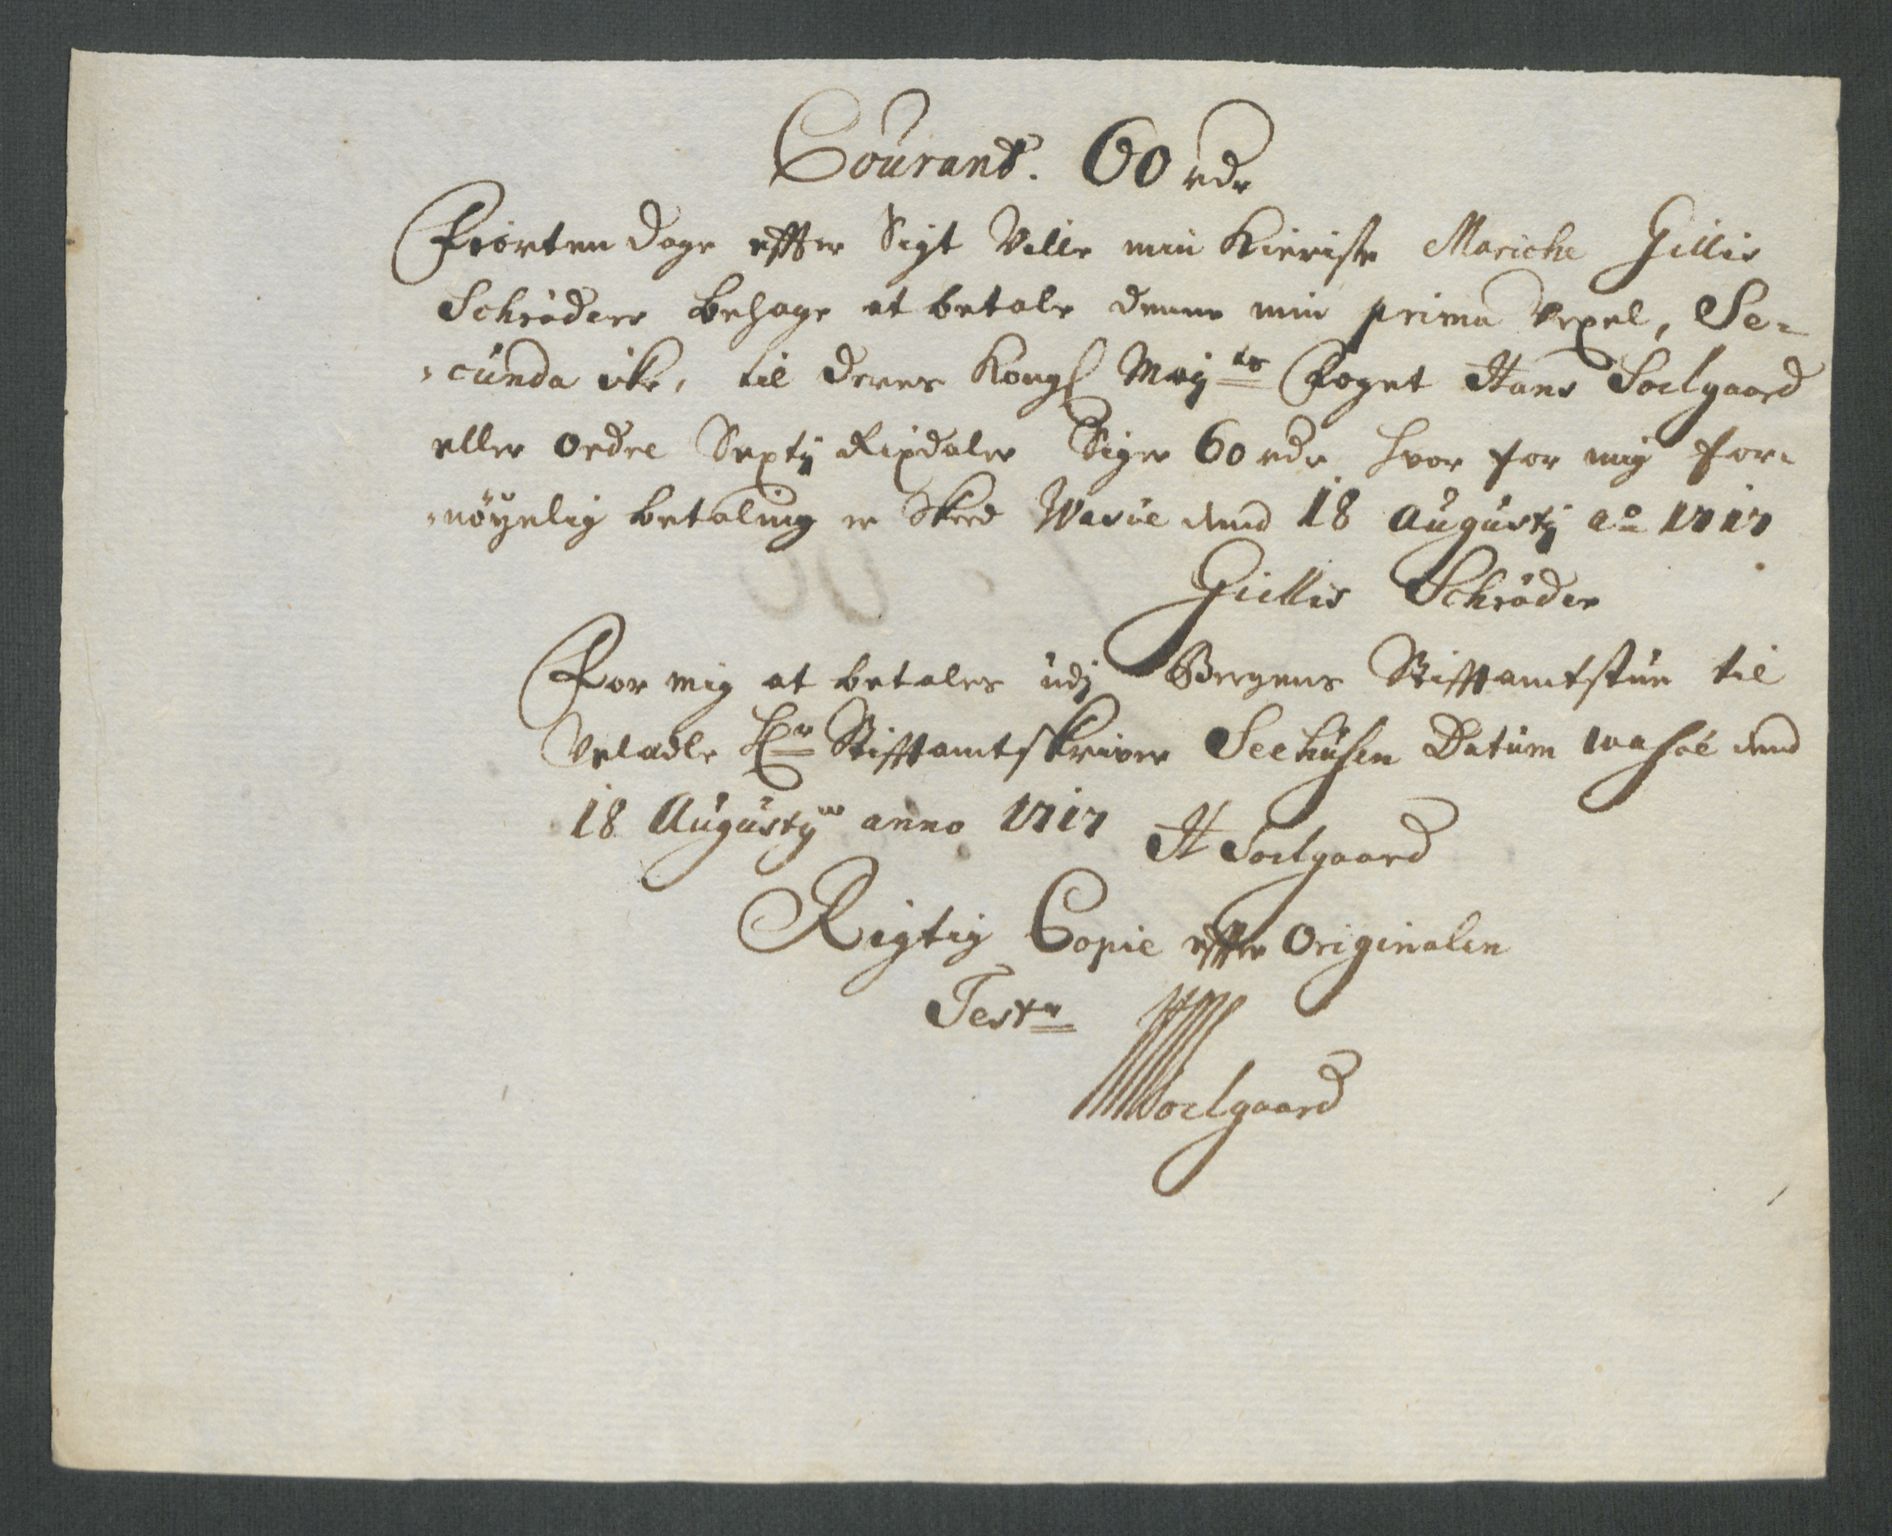 Courant. 60 rdr
Fiorten dage effter Sigt Ville min Kieriste Mariche Gillis
Schröders behage at betale denne min prima Vexel, Se-
-cunda ike, til deres Kongl Mayts Foget Hans Soelgaard
eller ordre Sexty Rixdaler Siger 60 rdr hvor for mig for-
-nöyelig betaling er Skeed Wasöe dend 18 Augusty ao 1717
Gillis Schröder
For mig at betales udj Bergens Stifftamtstue til
Veladle Hr Stifftamtskriver Seehusen Datum Wasöe dend
18 Augusty anno 1717 H Soelgaard
Rigtig Copie effter Originalen
Tester
HSoelgaard